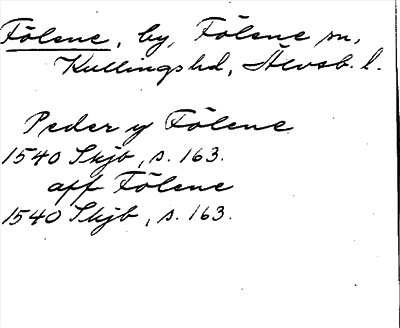 Fölene, by, Fölene sn,
Kullings hd, Älvsb. l.
Peder y Fölene
1540 Skjb, s. 163.
aff Fölene
1540 Skjb, s. 163.